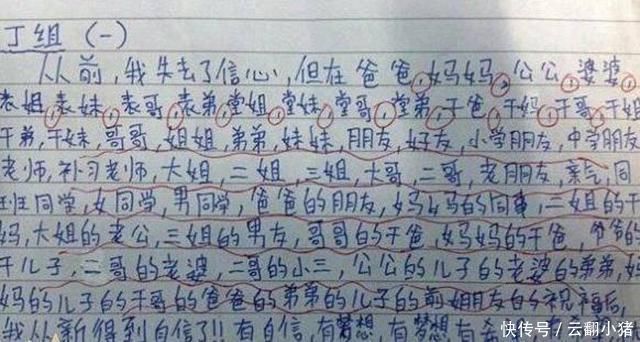 丁组（一）
从前，我失去了信心，但在爸爸，妈妈，公公，婆婆，
表姐，表妹，表哥，表弟，堂姐，堂妹，堂哥，堂弟，干爸，干妈，干哥，干姐
干弟，干妹，哥哥，姐姐，弟弟，妹妹，朋友，好友，小学朋友，中学朋友
老师，补习老师，大姐，二姐，三姐，大哥，二哥，老朋友，亲气，同
班同学，女同学，男同学，爸爸的朋友，妈妈的同事，二姐的干
妈，大姐的老公，三姐的男友，哥哥的干爸，妈妈的干爸，爷爷的
干儿子，二哥的老婆，二哥的小三，公公的儿子的老婆的弟弟，妈
妈的儿子的干哥的爸爸的弟弟的儿子的前姐朋友的祝福后，
我从新得到自信了!! 有自信，有梦想，有梦想有
快传号／云翻小猪